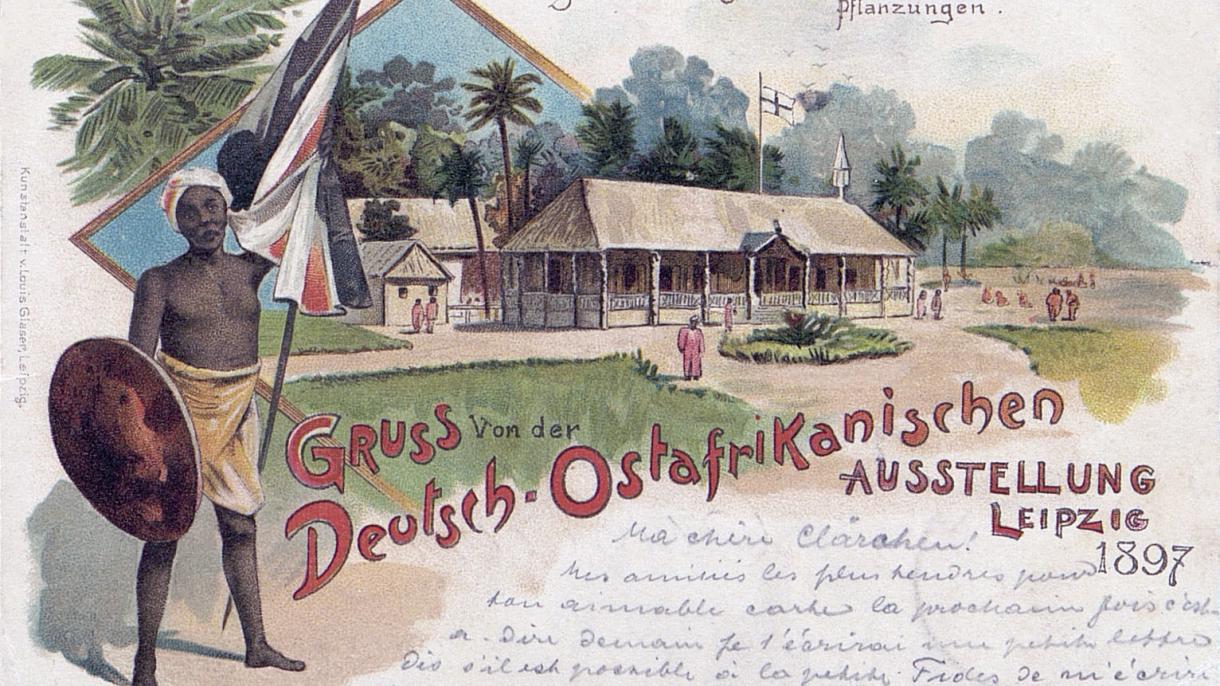 Pflanzungen.
Kunstanstalt v. Louis Glaser, Leipzig.
GRUSS von der
Deutsch-Ostafrikanischen
AUSSTELLUNG
LEIPZIG
1897
Ma chère Clärchen!
Mes amitiés les plus tendres pour
ton aimable carte la prochain fois c'est-
a-dire demain je t'écrirai une petite lettre
Dis s'il est possible à la petite Fides de m'écrire